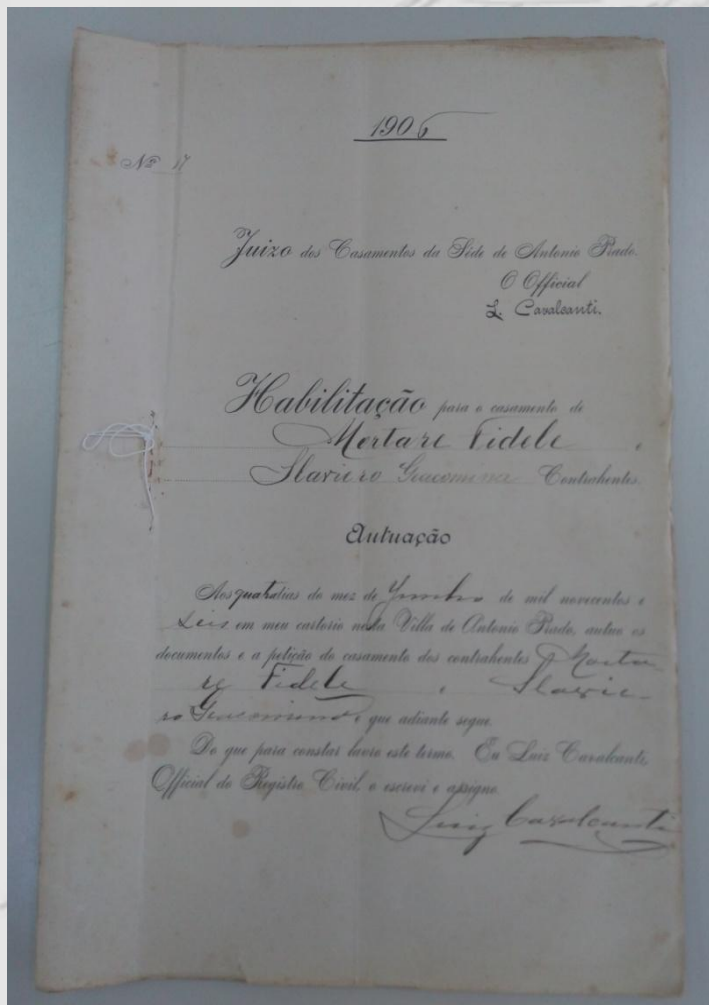 1906
Nº 17
Juizo dos Casamentos da Séde de Antonio Prado.
O Official
L. Cavalcanti.
Habilitação para o casamento de
Mortare Fidele e
Slaviero Giacomina Contrahentes.
Autuação
Aos quatro dias do mez de Junho de mil novecentos e
seis em meu cartorio nesta Villa de Antonio Prado, autuo os
documentos e a petição do casamento dos contrahentes Morta
re Fidele e Slavie-
ro Giacomina, que adiante segue.
Do que para constar lavro este termo. Eu Luiz Cavalcanti,
Official do Registro Civil, o escrevi e assigno.
Luiz Cavalcanti